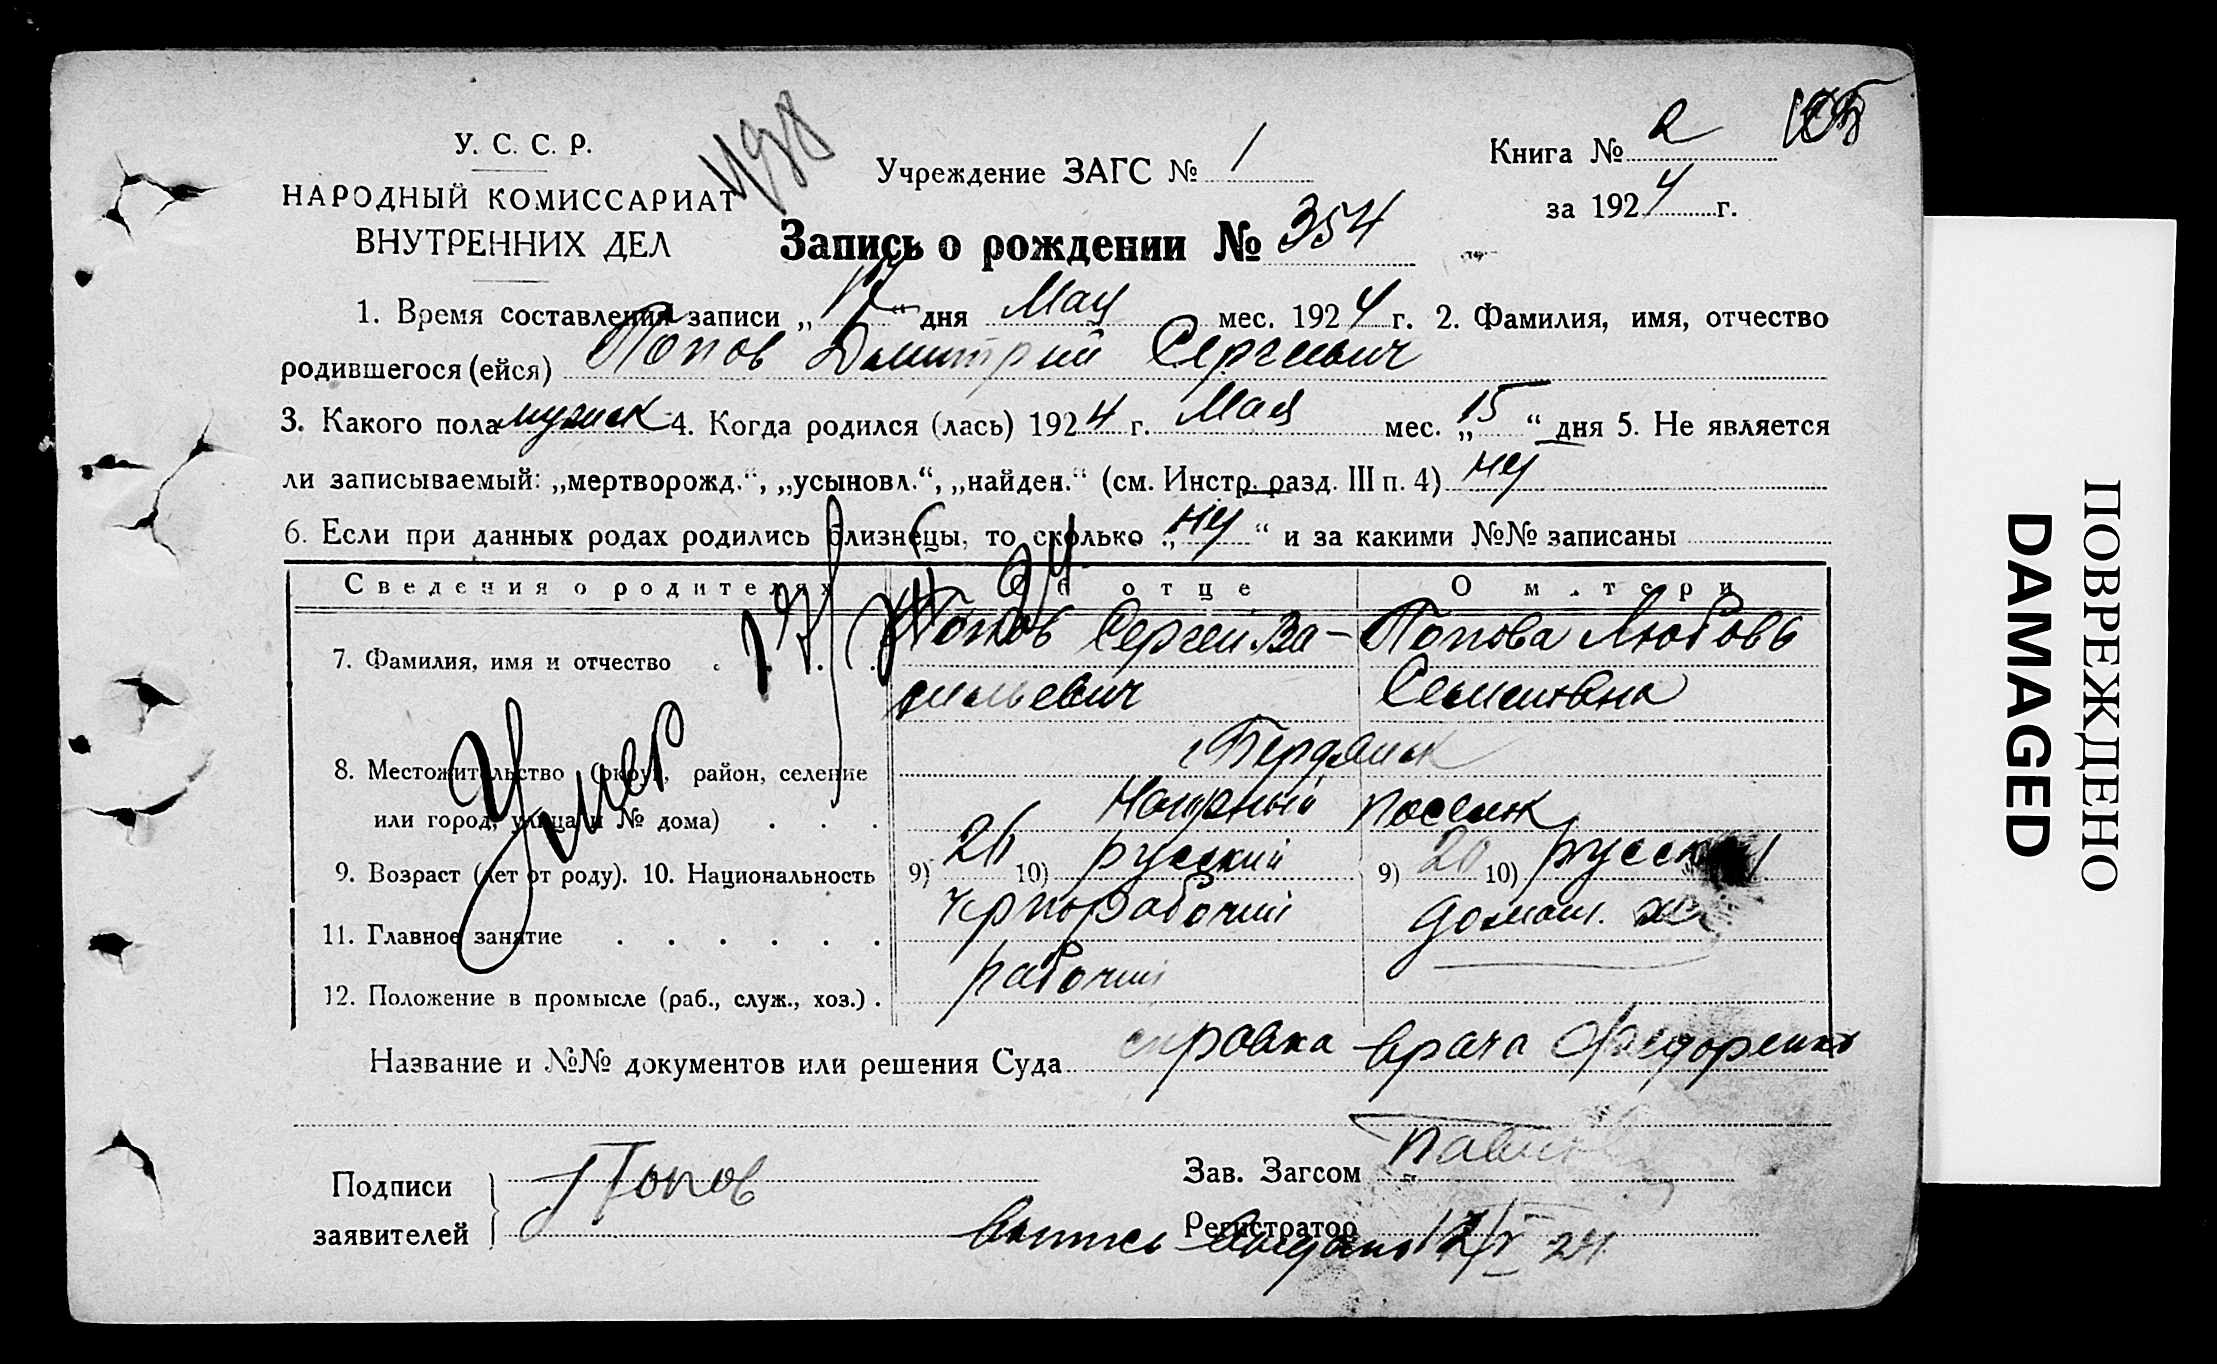 У. С. С. Р.
НАРОДНЫЙ КОМИССАРИАТ
ВНУТРЕННИХ ДЕЛ
Учреждение ЗАГС № 1
Книга № 2
за 1924 г.
Запись о рождении № 354
1. Время составления записи „17“ дня Мая мес. 1924 г. 2. Фамилия, имя, отчество
родившегося (ейся) Попов Дмитрий Сергеевич
3. Какого пола мужск 4. Когда родился (лась) 1924 г. Мая мес. „15“ дня 5. Не является
ли записываемый: „мертворожд.“, „усыновл.“, „найден.“ (см. Инстр. разд. III п. 4)
6. Если при данных родах родились близнецы, то сколько „ “ и за какими №№ записаны
Сведения о родителях Об отце О матери
7. Фамилия, имя и отчество Попов Сергей Ва- Попова Любовь
сильевич Семеновна
Умер
8. Местожительство (округ, район, селение г Бердянск
или город, улица и № дома) Нагорный поселок
9. Возраст (лет от роду). 10. Национальность 9) 26 10) русский 9) 20 10)
11. Главное занятие чернорабочий домаш.
12. Положение в промысле (раб., служ., хоз.) рабочий
Название и №№ документов или решения Суда справка врача Федоренко
Подписи
заявителей Попов
Зав. Загсом
Регистратор
Выпись выдана 17/V 24
ПОВРЕЖДЕНО
DAMAGED